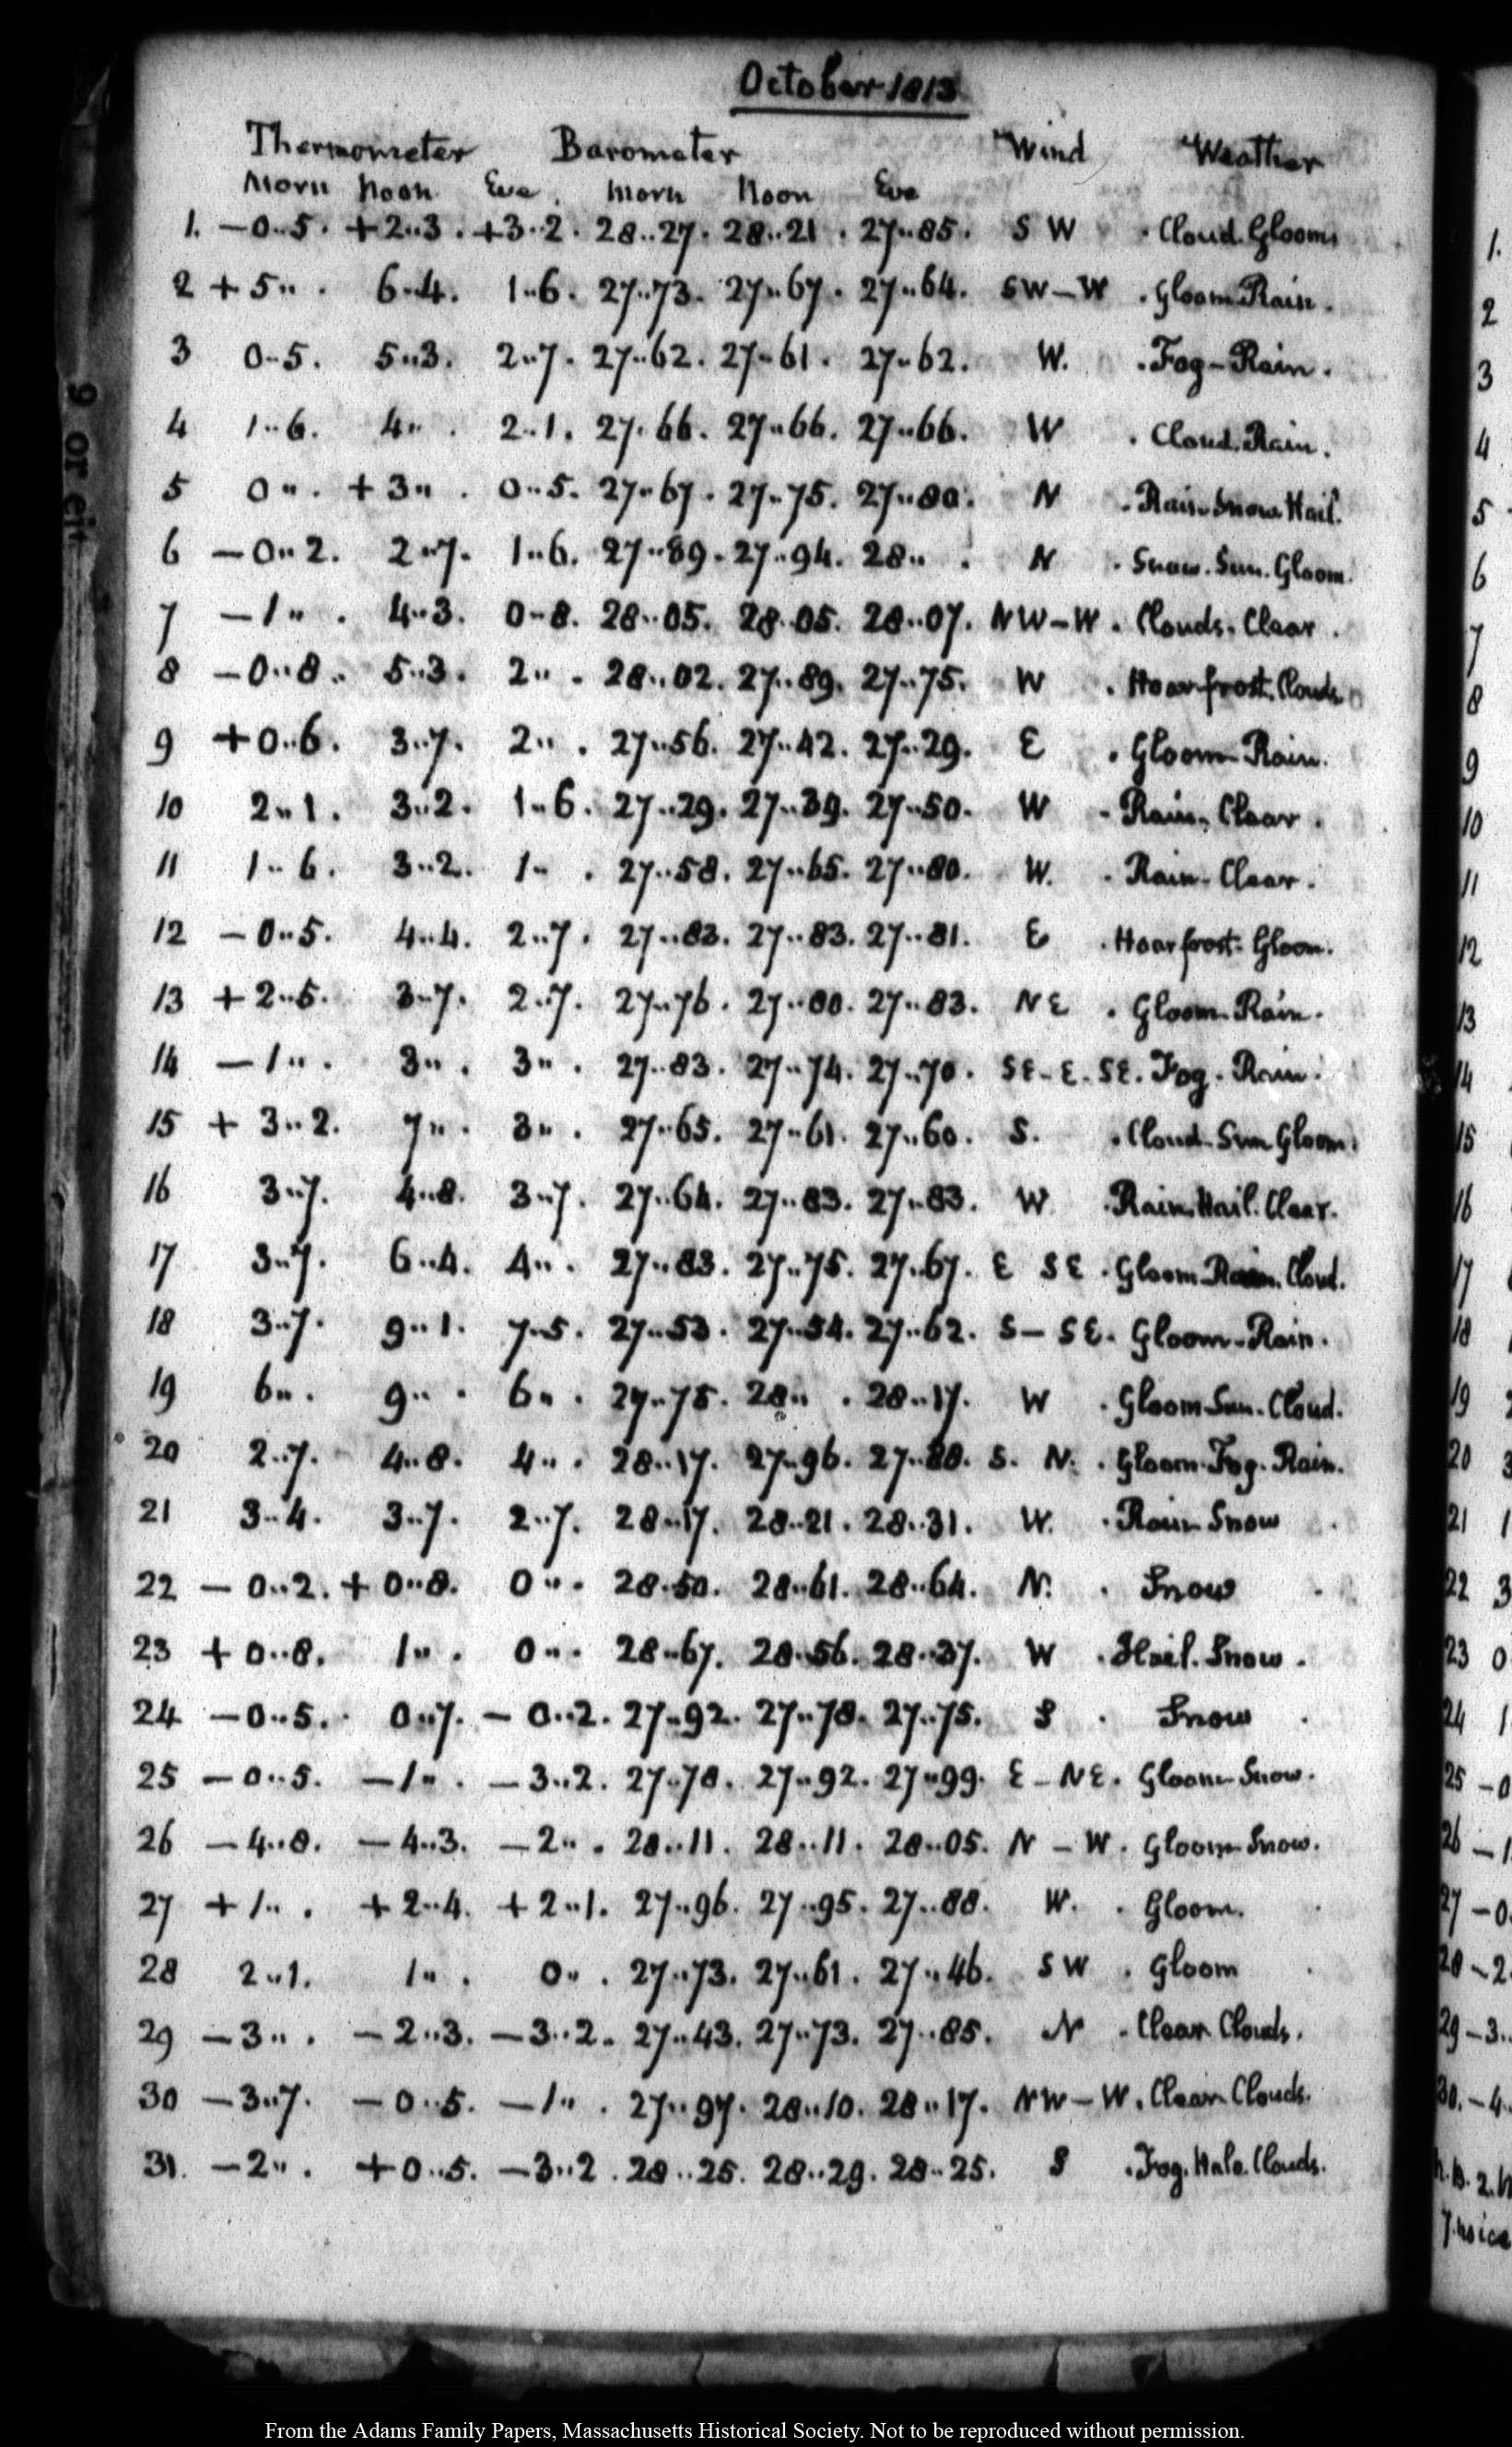 October 1813.
Thermometer Barometer Wind Weather
Morn Noon Eve. Morn Noon Eve
1. −0..5. +2..3. +3..2. 28..27. 28..21. 27..85. S W . Cloud. Gloom
2 +5.. . 6..4. 1..6. 27..73. 27..67. 27..64. SW−W . Gloom Rain.
3 0..5. 5..3. 2..7. 27..62. 27..61. 27..62. W. . Fog−Rain.
4 1..6. 4.. . 2..1. 27..66. 27..66. 27..66. W . Cloud. Rain.
5 0.. . +3.. . 0..5. 27..67. 27..75. 27..80. N . Rain Snow Hail.
6 −0..2. 2..7. 1..6. 27..89. 27..94. 28.. . N . Snow. Sun. Gloom.
7 −1.. . 4..3. 0..8. 28..05. 28..05. 28..07. NW−W. Clouds. Clear.
8 −0..8.. 5..3. 2.. . 28..02. 27..89. 27..75. W . Hoar frost. Clouds
9 +0..6. 3..7. 2.. . 27..56. 27..42. 27..29. E . Gloom−Rain.
10 2..1. 3..2. 1..6. 27..29. 27..39. 27..50. W − Rain. Clear.
11 1..6. 3..2. 1.. . 27..58. 27..65. 27..80. W. . Rain. Clear.
12 −0..5. 4..4. 2..7. 27..83. 27..83. 27..81. E . Hoar frost. Gloom.
13 +2..5. 3..7. 2..7. 27..76. 27..80. 27..83. N E . Gloom. Rain.
14 −1.. . 3.. . 3.. . 27..83. 27..74. 27..70. SE−E. SE. Fog. Rain.
15 +3..2. 7.. . 3.. . 27..65. 27..61. 27..60. S. . Cloud. Sun Gloom.
16 3..7. 4..8. 3..7. 27..64. 27..83. 27..83. W . Rain. Hail. Clear.
17 3..7. 6..4. 4.. . 27..83. 27..75. 27..67. E SE . Gloom Rain. Cloud.
18 3..7. 9..1. 7..5. 27..53. 27..54. 27..62. S− SE. Gloom−Rain.
19 6.. . 9.. . 6.. . 27..75. 28.. . 28..17. W . Gloom Sun. Cloud.
20 2..7. 4..8. 4.. . 28..17. 27..96. 27..88. S. N. . Gloom. Fog. Rain.
21 3..4. 3..7. 2..7. 28..17. 28..21. 28..31. W. . Rain Snow .
22 −0..2. +0..8. 0.. . 28..50. 28..61. 28..64. N. . Snow .
23 +0..8. 1.. . 0.. . 28..67. 28..56. 28..37. W . Hail. Snow.
24 −0..5. 0..7. −0..2. 27..92. 27..78. 27..75. S . Snow .
25 −0..5. −1.. . −3..2. 27..78. 27..92. 27..99. E−NE. Gloom Snow.
26 −4..8. −4..3. −2.. . 28..11. 28..11. 28..05. N−W. Gloom−Snow.
27 +1.. . +2..4. +2..1. 27..96. 27..95. 27..88. W. . Gloom. .
28 2..1. 1.. . 0.. . 27..73. 27..61. 27..46. S W . Gloom .
29 −3.. . −2..3. −3..2. 27..43. 27..73. 27..85. N . Clear Clouds.
30 −3..7. −0..5. −1.. . 27..97. 28..10. 28..17. NW−W. Clear Clouds.
31. −2.. . +0..5. −3..2. 28..25. 28..29. 28..25. S . Fog. Halo. Clouds.
From the Adams Family Papers, Massachusetts Historical Society. Not to be reproduced without permission.